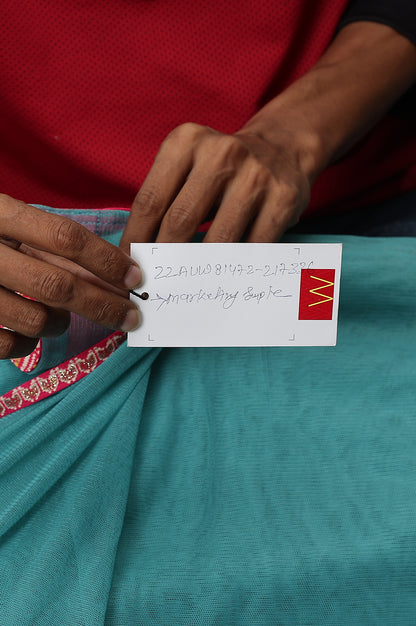 22AUW81472-217336
Marketing Sample